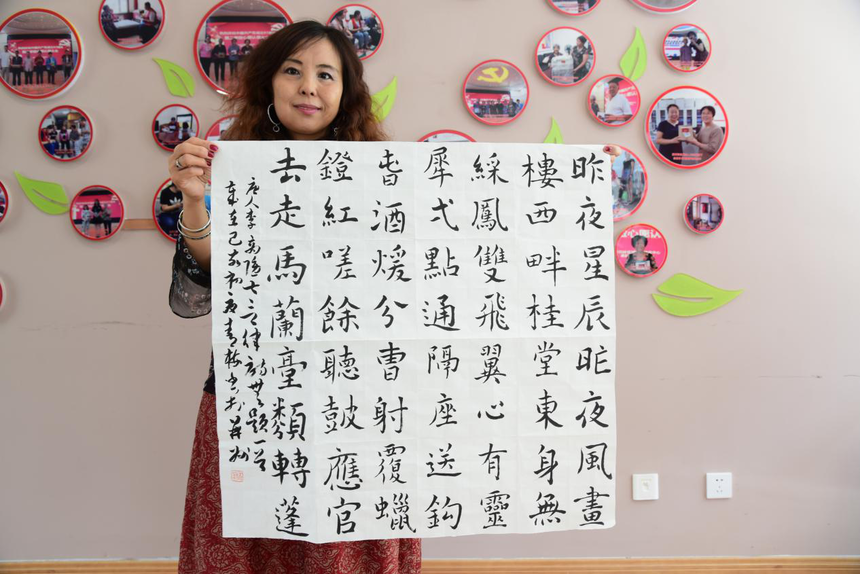 昨夜星辰昨夜風畫
樓西畔桂堂東身無
綵鳳雙飛翼心有靈
犀弌點通隔座送鈎
旾酒煖分曹射覆蠟
鐙紅嗟餘聽鼓應官
去走馬蘭臺類轉蓬
唐人李商隱七言律詩無題一首
歲在己亥初夏書於并州